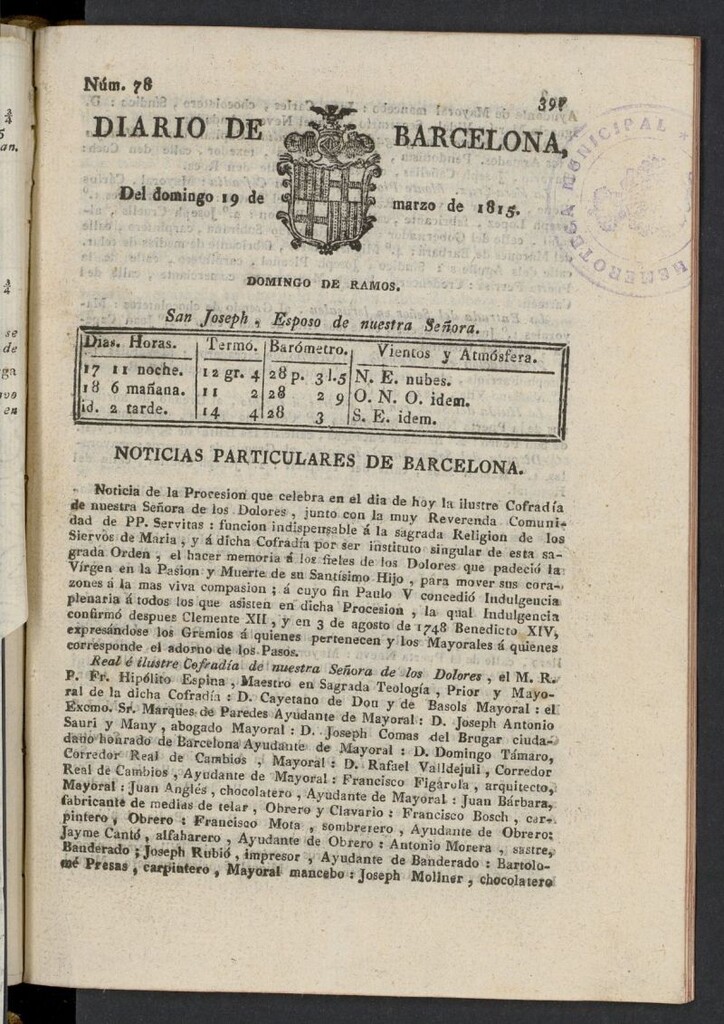 Núm. 78
DIARIO DE BARCELONA,
Del domingo 19 de marzo de 1815.
HEMEROTECA MUNICIPAL
DOMINGO DE RAMOS.
San Joseph, Esposo de nuestra Señora.
Dias. Horas. Termó. Barómetro. Vientos y Atmósfera.
17 11 noche. 12 gr. 4 28 p. 3 l.5 N. E. nubes.
18 6 mañana. 11 2 28 2 9 O. N. O. idem.
id. 2 tarde. 14 4 28 3 S. E. idem.
NOTICIAS PARTICULARES DE BARCELONA.
Noticia de la Procesion que celebra en el dia de hoy la ilustre Cofradía
de nuestra Señora de los Dolores, junto con la muy Reverenda Comuni-
dad de PP. Servitas: funcion indispensable á la sagrada Religion de los
Siervos de Maria, y á dicha Cofradía por ser instituto singular de esta sa-
grada Orden, el hacer memoria á los fieles de los Dolores que padeció la
Vírgen en la Pasion y Muerte de su Santísimo Hijo, para mover sus cora-
zones á la mas viva compasion; á cuyo fin Paulo V concedió Indulgencia
plenaria á todos los que asisten en dicha Procesion, la qual Indulgencia
confirmó despues Clemente XII, y en 3 de agosto de 1748 Benedicto XIV,
expresándose los Gremios á quienes pertenecen y los Mayorales á quienes
corresponde el adorno de los Pasos.
Real é ilustre Cofradía de nuestra Señora de los Dolores, el M. R.
P. Fr. Hipólito Espina, Maestro en Sagrada Teología, Prior y Mayo-
ral de la dicha Cofradía: D. Cayetano de Dou y de Basols Mayoral: el
Excmo. Sr. Marques de Paredes Ayudante de Mayoral: D. Joseph Antonio
Sauri y Many, abogado Mayoral: D. Joseph Comas del Brugar ciuda-
dano honrado de Barcelona Ayudante de Mayoral: D. Domingo Támaro,
Corredor Real de Cambios, Mayoral: D. Rafael Valldejuli, Corredor
Real de Cambios, Ayudante de Mayoral: Francisco Figárola, arquitecto,
Mayoral: Juan Anglés, chocolatero, Ayudante de Mayoral: Juan Bárbara,
fabricante de medias de telar, Obrero y Clavario: Francisco Bosch, car-
pintero, Obrero: Francisco Mota, sombrerero, Ayudante de Obrero:
Jayme Cantó, alfaharero, Ayudante de Obrero: Antonio Morera, sastre,
Banderado; Joseph Rubió, impresor, Ayudante de Banderado: Bartolo-
mé Presas, carpintero, Mayoral mancebo: Joseph Moliner, chocolatero